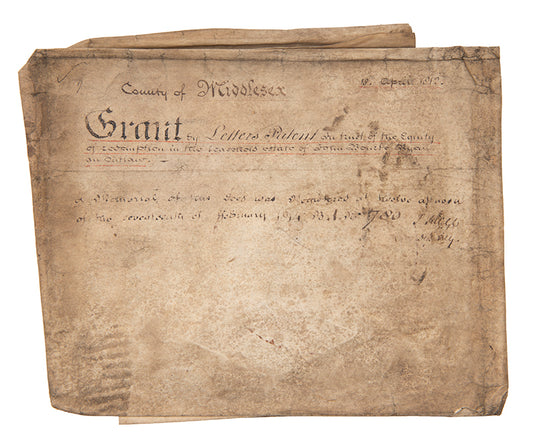 County of Middlesex
April
Grant by Letters Patent in trust of the Equity
of redemption in the Leasehold estate of John Bourke Ryan
an Outlaw.
A Memorial of this Deed was Registered at Twelve
of the seventeenth of February B.1. No 780